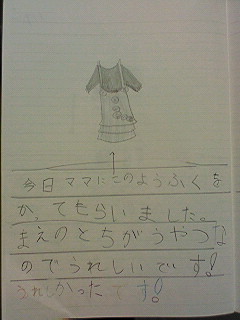 今日ママにこのようふくを
かってもらいました。
まえのとちがうやつな
のでうれしいです!
うれしかったです!